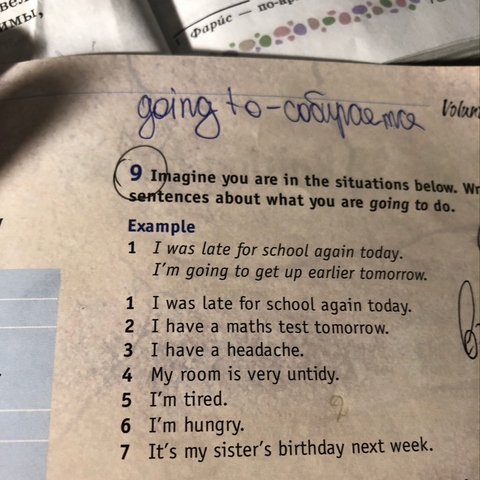 имы,
Фарис — по-
going to - собирается
Volun
9 Imagine you are in the situations below. Wr
sentences about what you are going to do.
Example
1 I was late for school again today.
I'm going to get up earlier tomorrow.
1 I was late for school again today.
2 I have a maths test tomorrow.
3 I have a headache.
4 My room is very untidy.
5 I'm tired.
6 I'm hungry.
7 It's my sister's birthday next week.